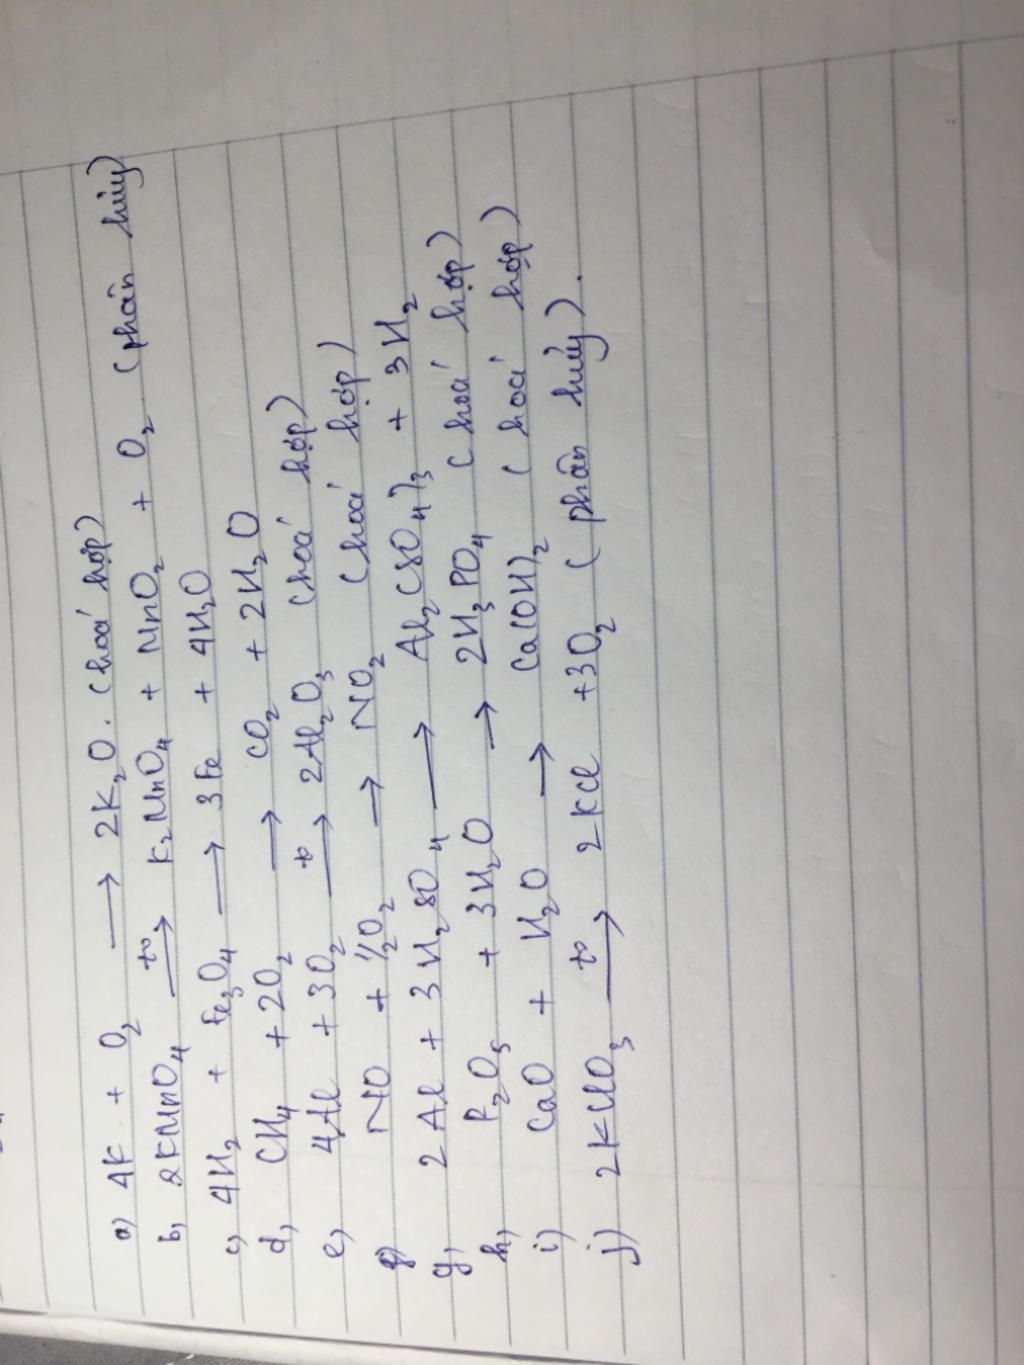 a) 4K + O₂ ⟶ 2K₂O. (hoá hợp)
b, 2KMnO₄ ⟶ᵗᵒ K₂MnO₄ + MnO₂ + O₂ (phân hủy)
c, 4H₂ + Fe₃O₄ ⟶ 3Fe + 4H₂O
d, CH₄ + 2O₂ ⟶ CO₂ + 2H₂O
e, 4Al + 3O₂ ⟶ᵗᵒ 2Al₂O₃ (hoá hợp)
NO + ½O₂ ⟶ NO₂ (hoá hợp)
g, 2Al + 3H₂SO₄ ⟶ Al₂(SO₄)₃ + 3H₂
h, P₂O₅ + 3H₂O ⟶ 2H₃PO₄ (hoá hợp)
i) CaO + H₂O ⟶ Ca(OH)₂ (hoá hợp)
j) 2KClO₃ ⟶ᵗᵒ 2KCl + 3O₂ (phân hủy).